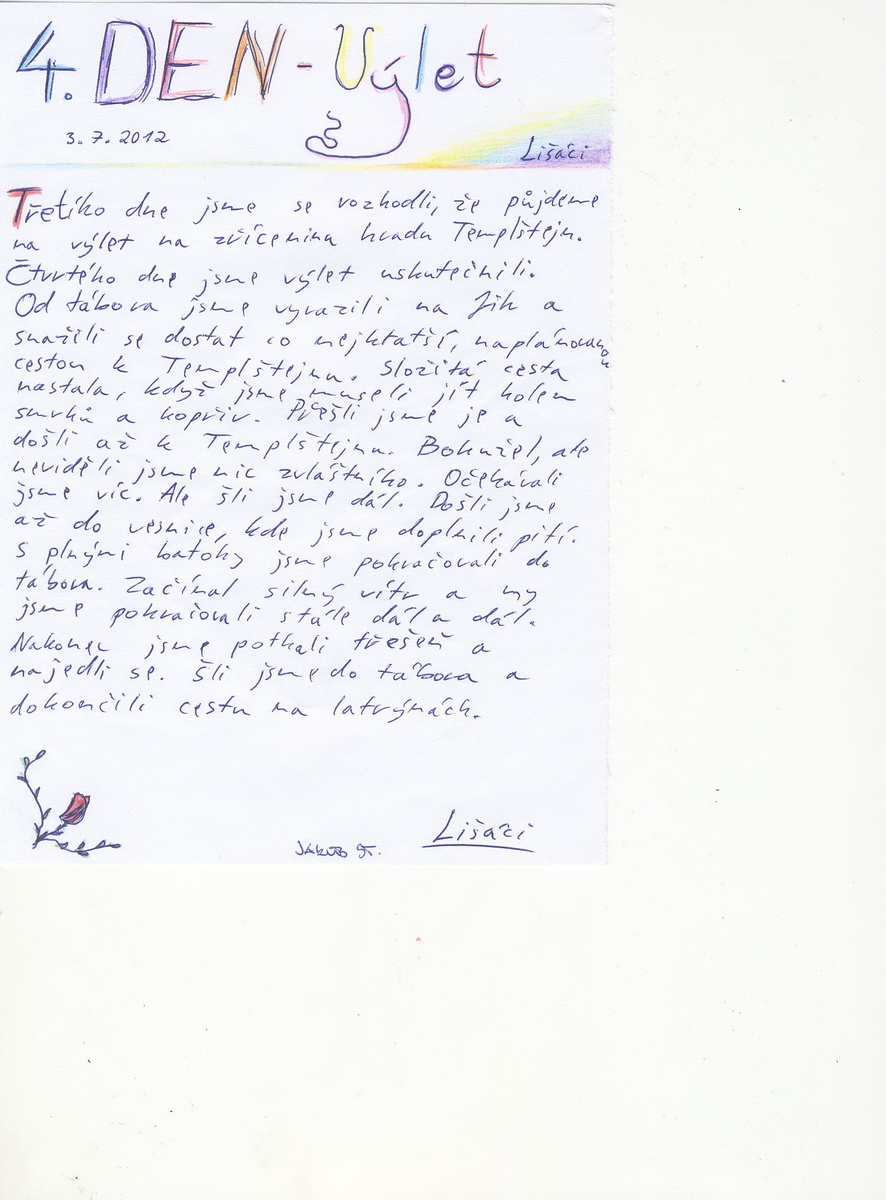 4. DEN - Výlet
3. 7. 2012
Lišáci
Třetího dne jsme se rozhodli, že půjdeme
na výlet na zřícenina hradu Templštejn.
Čtvrtého dne jsme výlet uskutečnili.
Od tábora jsme vyrazili na Jih a
snažili se dostat co nejkratší, naplánovanou
cestou k Templštejnu. Složitá cesta
nastala, když jsme museli jít kolem
smrků a kopřiv. Přešli jsme je a
došli až k Templštejnu. Bohužel, ale
neviděli jsme nic zvláštního. Očekávali
jsme víc. Ale šli jsme dál. Došli jsme
až do vesnice, kde jsme doplnili pití.
S plnými batohy jsme pokračovali do
tábora. Začínal silný vítr a my
jsme pokračovali stále dál a dál.
Nakonec jsme potkali třešeň a
najedli se. Šli jsme do tábora a
dokončili cestu na latrýnách.
Lišáci
JAKUB